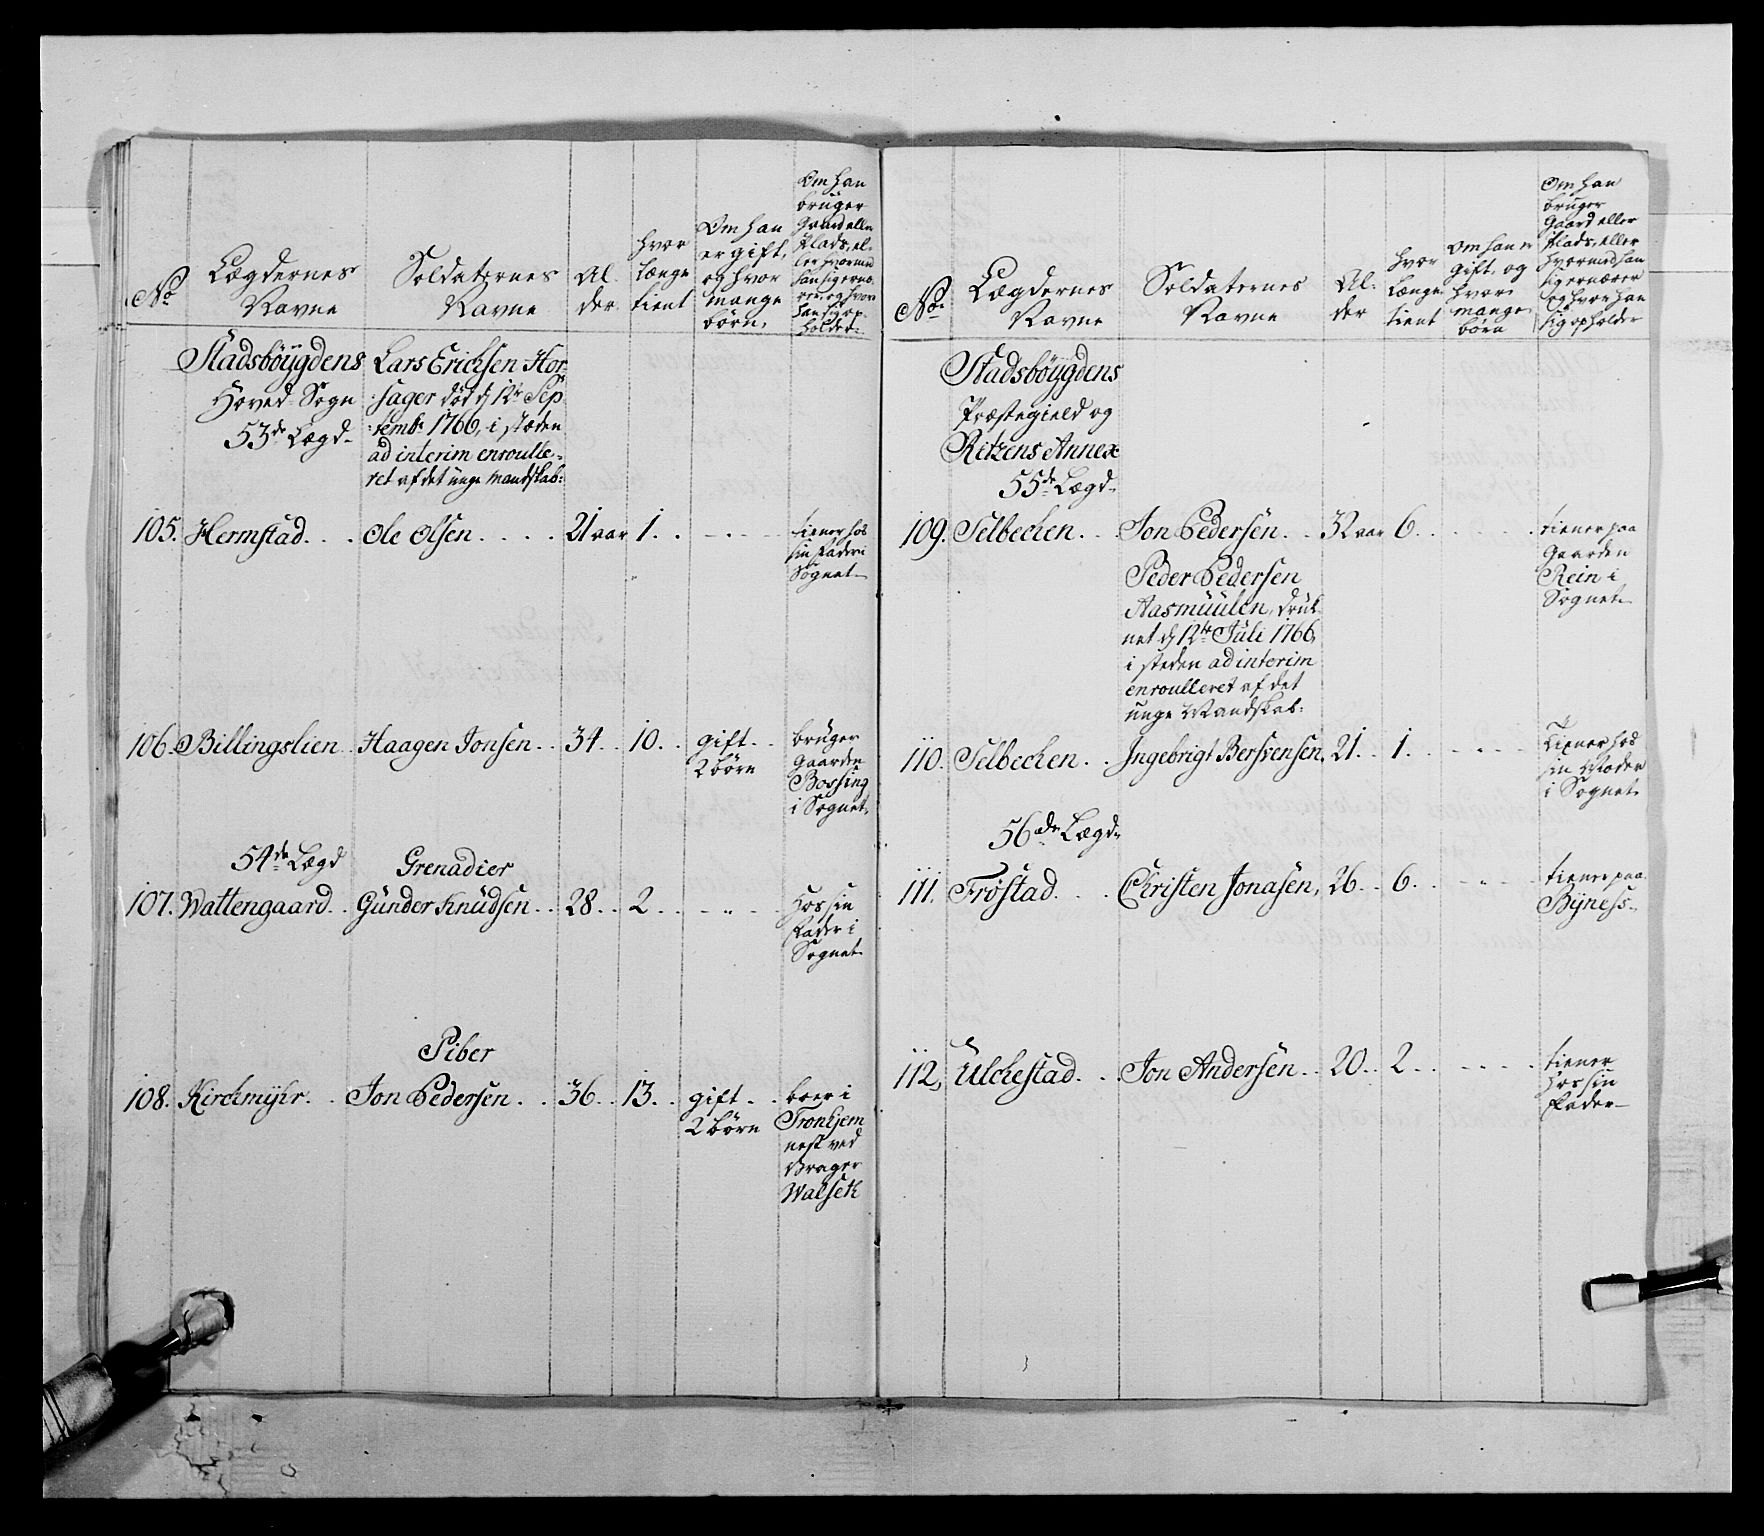 No
Lægdernes
Navne
Soldaternes
Navne
Al-
der.
hvor
længe
tient
Om han
er gift,
og hvor
mange
börn.
Om han
bruger
Gaard eller
Plads, el-
ler hvormed
han sig ernæ-
rer, og hvor
han sig op-
holder.
Stadsböÿgdens
Hoved-Sogn
53de Lægd-
Lars Erichsen Hor-
sager död d 12te Sep-
temb: 1766, i stæden
ad interim enroulle-
ret af det unge Mandskab:
105. Hermstad. . . Ole Olsen. . . . . 21 aar 1. . - . - . - tiener hos
sin Fader i
Sognet-
106. Billingslien. . Haagen Jonsen. . 34. . 10. . gift. . bruger
2 börn Gaarden
Bossing
i Sognet.
54de Lægd Grenadier
107. Wattengaard. . Günder Knüdsen. . 28. . 2. . . - . . - . Hos sin
Fader i
Sognet
Piber
108. Kirchmÿhr. . . Jon Pedersen. . . 36. . 13. . gift. . . boer i
2 börn Tronhjem
nest ved
Brager
Walsek
No.
Lægdernes
Navne
Soldaternes
Navne
Al-
der
hvor
længe
tient
Om han er
gift, og
hvor
mange
börn
Om han
bruger
Gaard eller
Plads, eller
hvormed han
sig ernærer
og hvor han
sig opholder
Stadsböÿgdens
Præstegield og
Ritzens Annex
55de Lægd-
109. Selbechen. . . Jon Pedersen. . . 32 aar 6. . . . . . . tiener paa
Gaarden
Rein i
Sognet-
Peder Pedersen
Aasmüülen, druk-
net d 12te Juli 1766,
i steden ad interim
enroulleret af det
unge Mandskab:
110. Selbechen. . . Ingebrigt Bersvensen, 21. . 1. . . - . . - . Tiener hos
sin Moder
i Sognet-
56de Lægd-
111. Fröstad. . . . Christen Jonasen, 26. . 6. . . - . . - . tiener paa
Bÿness-
112, Ulchestad. . . Jon Andersen. . 20. . 2. . . - . - . - . tiener
Hos sin
Fader-